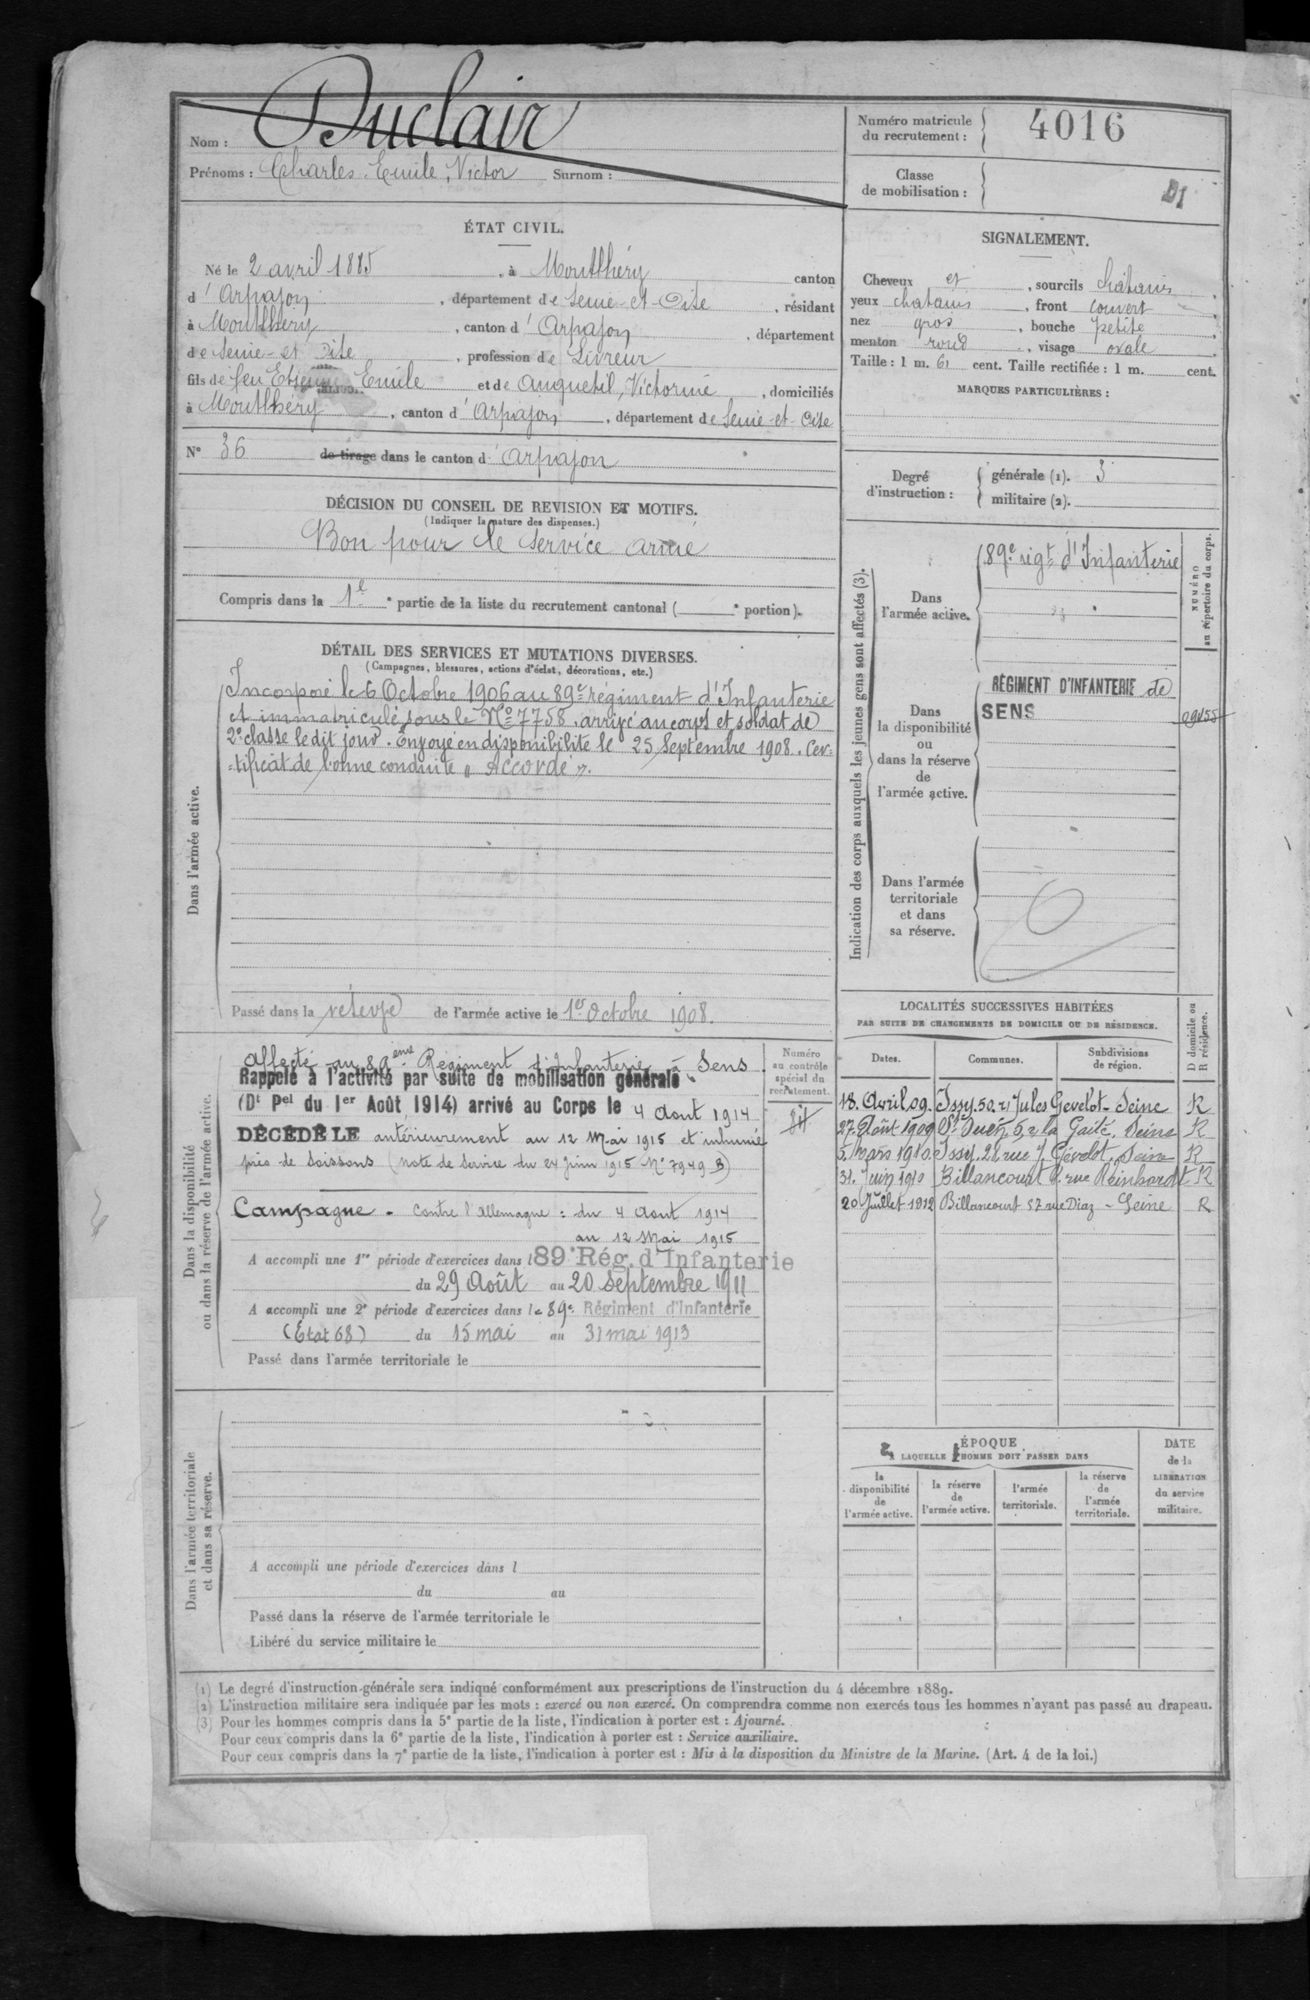 Nom : Duclair
Prénoms : Charles Emile, Victor Surnom :
Numéro matricule du recrutement : 4016
Classe de mobilisation :
ÉTAT CIVIL.
Né le 2 avril 1885, à Montlhéry canton
d'Arpajon, département de Seine-et-Oise, résidant
à Montlhéry, canton d'Arpajon, département
de Seine-et-Oise, profession de Livreur
fils de feu Etienne Emile et de Anquetil, Victorine, domiciliés
à Montlhéry, canton d'Arpajon, département de Seine-et-Oise
N° 36 de tirage dans le canton d'Arpajon
SIGNALEMENT.
Cheveux et, sourcils chatains,
yeux chatains, front couvert
nez gros, bouche petite
menton rond, visage ovale
Taille : 1 m. 61 cent. Taille rectifiée : 1 m. cent.
MARQUES PARTICULIÈRES :
Degré d'instruction : générale (1). 3
militaire (2).
DÉCISION DU CONSEIL DE REVISION ET MOTIFS.
(Indiquer la nature des dispenses.)
Bon pour le service armé
Compris dans la 1e partie de la liste du recrutement cantonal ( e portion).
DÉTAIL DES SERVICES ET MUTATIONS DIVERSES.
(Campagnes, blessures, actions d'éclat, décorations, etc.)
Dans l'armée active.
Incorporé le 6 Octobre 1906 au 89e régiment d'Infanterie
et immatriculé sous le No 7758, arrivé au corps et soldat de
2e classe le dit jour. Envoyé en disponibilité le 25 Septembre 1908. Cer-
-tificat de bonne conduite « Accordé ».
Passé dans la réserve de l'armée active le 1er Octobre 1908.
Indication des corps auxquels les jeunes gens sont affectés (3).
NUMÉRO au répertoire du corps.
Dans l'armée active.
89e rigt d'Infanterie
Dans la disponibilité ou dans la réserve de l'armée active.
RÉGIMENT D'INFANTERIE de
SENS
Dans l'armée territoriale et dans sa réserve.
Dans la disponibilité ou dans la réserve de l'armée active.
Numéro au contrôle spécial du recrutement.
Affecté au 89ème Régiment d'Infanterie à Sens
Rappelé à l'activité par suite de mobilisation générale
(Dt Pel du 1er Août 1914) arrivé au Corps le 4 Aout 1914
DÉCÉDÉ LE antérieurement au 12 Mai 1915 et inhumé
près de Soissons (Note de Service du 24 Juin 1915 No 7949 B)
Campagne - Contre l'Allemagne : du 4 Aout 1914
au 12 Mai 1915
A accompli une 1re période d'exercices dans l 89e Rég. d'Infanterie
du 29 Août au 20 Septembre 1911
A accompli une 2e période d'exercices dans le 89e Régiment d'Infanterie
(Etat 68) du 15 mai au 31 mai 1913
Passé dans l'armée territoriale le
LOCALITÉS SUCCESSIVES HABITÉES
PAR SUITE DE CHANGEMENTS DE DOMICILE OU DE RÉSIDENCE.
D domicile ou R résidence.
Dates. Communes. Subdivisions de région.
18. Avril, 09. Issy. 50. r. Jules Gevelot - Seine R
27 Août 1909 St Ouen, 5, r la Gaité. Seine R
5. Mars 1910. Issy. 21 rue J. Gévelot. Seine R
31. Juin 1910 Billancourt rue Reinhardt R
20 Juillet 1912 Billancourt 57 rue Diaz - Seine R
Dans l'armée territoriale et dans sa réserve.
A accompli une période d'exercices dans l
du au
Passé dans la réserve de l'armée territoriale le
Libéré du service militaire le
ÉPOQUE
À LAQUELLE L'HOMME DOIT PASSER DANS
la disponibilité de l'armée active.
la réserve de l'armée active.
l'armée territoriale.
la réserve de l'armée territoriale.
DATE de la LIBÉRATION du service militaire.
(1) Le degré d'instruction générale sera indiqué conformément aux prescriptions de l'instruction du 4 décembre 1889.
(2) L'instruction militaire sera indiquée par les mots : exercé ou non exercé. On comprendra comme non exercés tous les hommes n'ayant pas passé au drapeau.
(3) Pour les hommes compris dans la 5e partie de la liste, l'indication à porter est : Ajourné.
Pour ceux compris dans la 6e partie de la liste, l'indication à porter est : Service auxiliaire.
Pour ceux compris dans la 7e partie de la liste, l'indication à porter est : Mis à la disposition du Ministre de la Marine. (Art. 4 de la loi.)